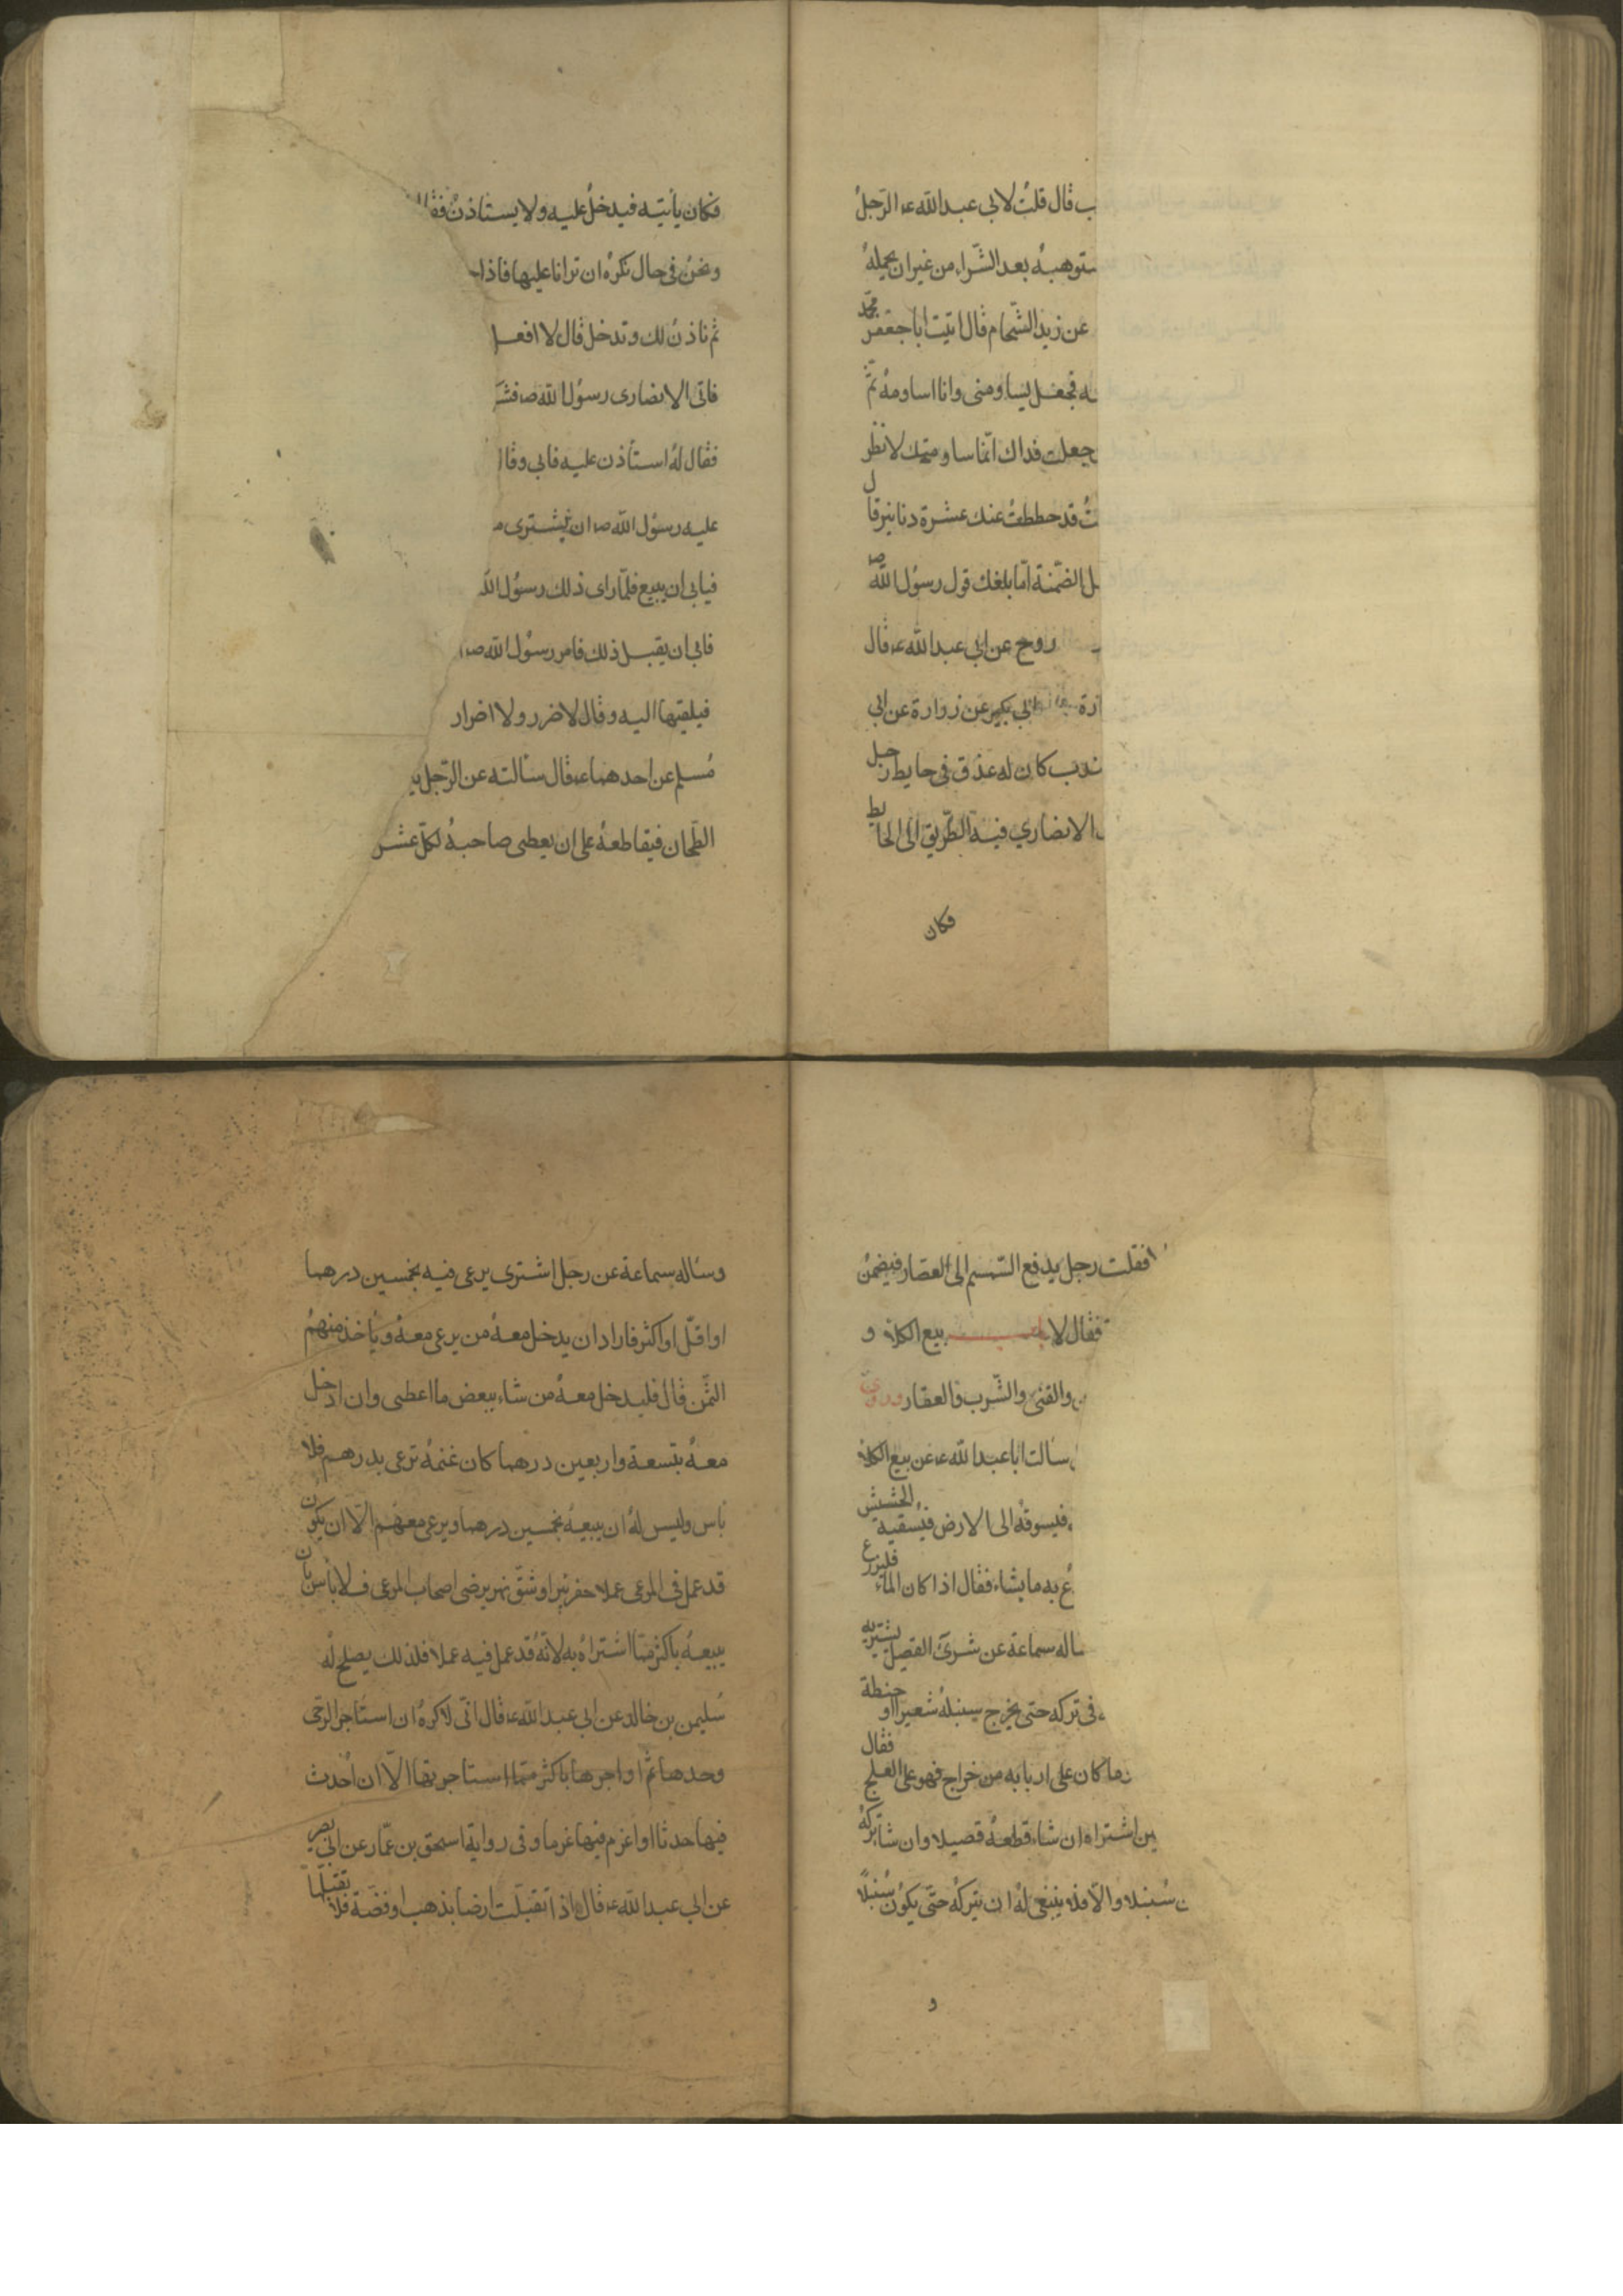 ب قال قلت لابي عبد الله ء الرجل
ستوهبه بعد الشراء من غير ان يحمله
عن زيد الشحام قال اتيت ابا جعفر محمد
ـه فجعل يساومنى وانا اساومه ثم
جعلت فداك انما ساومتك لانظر
ـت قد حططت عنك عشرة دنانير قال
ـل الضمنة اما بلغك قول رسول الله ص
روح عن ابي عبد الله ء قال
ارة بكير عن زرارة عن ابي
ـندب كان له عذق فى حايط رجل
الانصاري فيه الطريق الى الحايط
فكان
فكان يأتيه فيدخل عليه ولا يستاذن فقال
ونحن فى حال نكره ان ترانا عليها فاذا
ثم ناذن لك وتدخل قال لا افعل
فاتى الانصارى رسول الله ص فشـ
فقال له استأذن عليه فابى وقا
عليه رسول الله ص ان يشترى
فيابى ان يبيع فلما راى ذلك رسول الله
فابى ان يقبل ذلك فامر رسول الله ص
فيلقيها اليه وقال لا ضرر ولا اضرار
مسلم عن احدهما ء قال سألته عن الرجل
الطحان فيقاطعه على ان يعطى صاحبه لكل عشر
فقلت رجل يدفع السمسم الى العصار فيضمن
فقال لا باب بيع الكلاء و
والقنى والشرب والعقار وروى
سالت ابا عبد الله ء عن بيع الكلاء
فيسوقه الى الارض فيسقيه الحشيش
ـع به ما يشاء فقال اذا كان الماء فليزرع
ـاله سماعة عن شرى القصيل يشتريه
فى تركه حتى يخرج سنبله شعيرا او حنطة
وما كان على اربابه من خراج فهو على العلج فقال
ـين اشتراه ان شاء قطعه قصيلا وان شا تركه
ـن سنبلا والا فلا ينبغى له ان يتركه حتى يكون سنبلا
و
وساله سماعة عن رجل اشترى يرعى فيه بخمسين درهما
او اقل او اكثر فاراد ان يدخل معه من يرعى معه وياخذ منهم
الثمن قال فليدخل معه من شاء ببعض ما اعطى وان ادخل
معه بتسعة واربعين درهما كان غنمه ترعى بدرهم فلا
باس وليس له ان يبيعه بخمسين درهما ويرعى معهم الا ان يكون
قد عمل فى المرعى عملا حفر بئرا او شق نهر برضى اصحاب المرعى فلا باس بان
يبيعه باكثر مما اشتراه به لانه قد عمل فيه عملا فلذلك يصلح له
سليمن بن خالد عن ابي عبد الله ء قال انى لاكره ان استاجر الرحى
وحدها ثم اواجرها باكثر مما استاجرتها الا ان احدث
فيها حدثا او اغرم فيها غرما وفى رواية اسحق بن عمار عن ابي بصير
عن ابي عبد الله ء قال اذا تقبلت ارضا بذهب او فضة فلا تقبلها